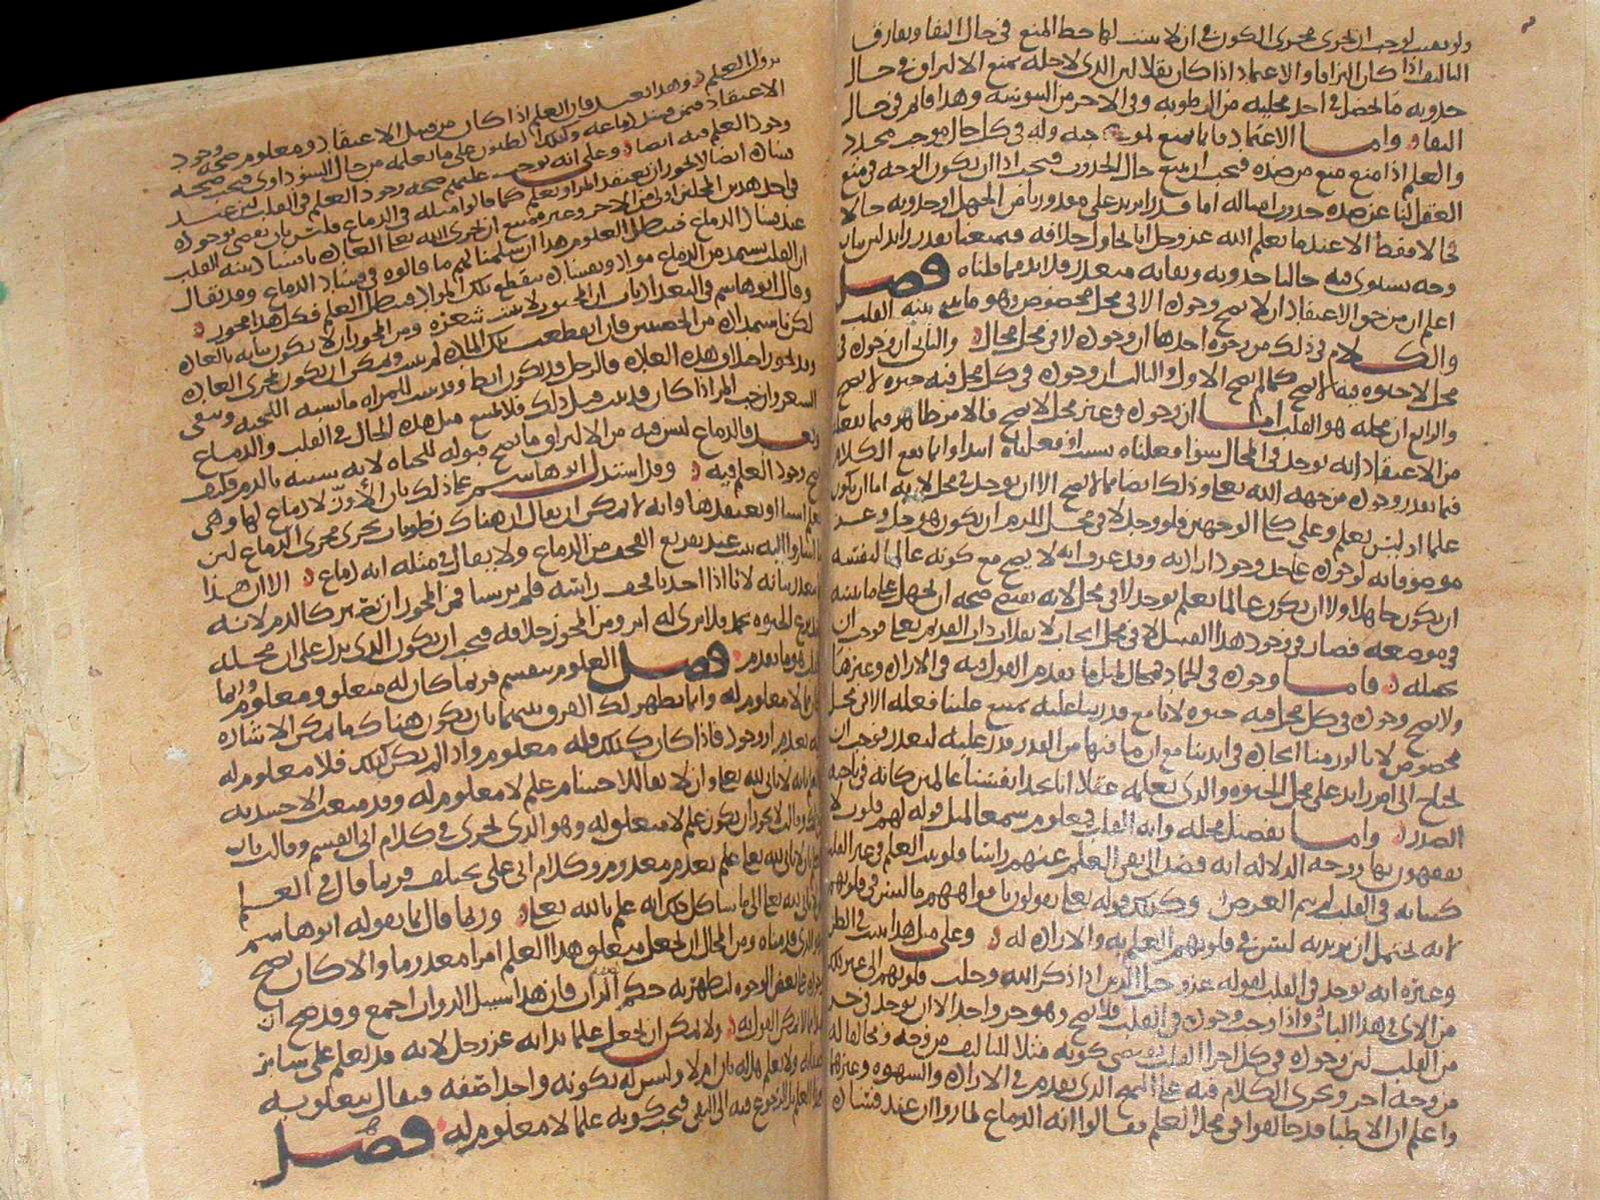 ولو بقيت لوجب ان تجرى مجرى الكون في ان لا يثبت لها حظ المنع في حال البقا ويفارق
التاليف اذا كان التزاقا والاعتماد اذا كان ثقلا لان الذى لاجله يمنع الالتزاق في حال
حدوثه ما يحصل في احد محليه من الرطوبه وفي الاخر من اليبوسه وهذا قائم في حال
البقا واما الاعتماد فانما يمنع لموجبه وله في كل حال موجب مجدد
والعلم اذا منع منع من ضده فيجب ان يمنع حال الحدوث فيجب اذا ان يكون الوجه في منع
العقل لنا عن ضده حدوث امثاله اما قدرا يزيد على مقدورنا من الجهل او حدوثه حالا
فحالا فقط الا عندما يعلم الله عز وجل انا نحاول خلافه فيمنعنا بقدر زايد لئن بان
وجه يستوى فيه حالتا حدوثه وبقايه فيتعذر فلا بد مما قلناه فصل
اعلم ان من حق الاعتقاد ان لا يصح وجوده الا في محل مخصوص وهو ما بنى بنيه القلب
والكلام في ذلك من وجوه احدها ان وجوده لا في محل محال والثانى ان وجوده في
محل لا حيوه فيه لا يصح كما لم يصح الاول والثالث ان وجوده في كل محل فيه حيوه لا يصح
والرابع ان محله هو القلب اما ان وجوده في غير محل لا يصح فالامر ظاهر فيما نفعله
من الاعتقاد انه يوجد في المحال سوا فعلناه بسبب او فعلناه ابتدا وانما يقع الكلام
فيما يقدر وجوده من جهه الله تعالى وذلك ايضا مما لا يصح الا ان يوجد في محل لانه اما ان يكون
علما او ليس بعلم وعلى كلا الوجهين فلو وجد لا في محل للزم ان يكون هو جل وعز
موصوفا به لوجوده على حد وجود ارادته وقد عرف انه لا يصح مع كونه عالما لنفسه
ان يكون جاهلا ولا ان يكون عالما بعلم يوجد لا في محل لانه يقتضى صحه ان يجهل على ما بينته
في موضعه فصار في وجود هذا القبيل لا في محل ايجاب لانقلاب ذات القديم تعالى فوجب ان
نحيله فاما وجوده في الجماد فمحال لمثل ما تقدم القول فيه في الاراده وغيرها
ولا يصح وجوده في كل محل فيه حيوه لانا مع قدرتنا عليه يمتنع علينا فعله الا في محل
مخصوص لانا لو رمنا ايجاده في ايدينا مع ان ما فيها من القدر قدر عليه لتعذر فوجب ان
يحتاج الى امر زايد على محل الحيوه والذى نعلمه عقلا انا نجد انفسنا عالمين كانه في ناحيه
الصدر واما تفصيل محله وانه القلب فمعلوم سمعا لمثل قوله لهم قلوب لا
يفقهون بها ووجه الدلاله انه قصد الى نفى العلم عنهم راسا فلو ثبت العلم في غير القلب
كثباته في القلب لم يتم الغرض وكذلك قوله تعالى يقولون بافواههم ما ليس في قلوبهم
لانه يحتمل ان يريد به ليس في قلوبهم العلم به والاراده له وعلى مثل هذا يثبت في النظر
وغيره انه يوجد في القلب لقوله عز وجل الذين اذا ذكر الله وجلت قلوبهم الى غير ذلك
من الاى في هذا الباب واذا وجب وجوده في القلب فلا يصح وهو جزو واحد الا ان يوجد في جزء
من القلب لئن وجوده في كل اجزا القلب يقتضى كونه مثلا للتاليف من وجه ومخالفا له
من وجه اخر ويجرى الكلام فيه على النهج الذى تقدم في الاراده والشهوه وغيرهما
واعلم ان الاطبا قد خالفوا في محل العلم فقالوا انه الدماغ لما رووا ان عند فساده
يزول العلم وهذا بعيد فان العلم اذا كان من قبيل الاعتقاد ومعلوم صحه وجود
الاعتقاد ممن فسد دماغه وكذلك الظنون على ما نعلمه من حال السوداوى فيجب صحه
وجود العلم فيه ايضا وعلى انه يوجب عليهم صحه وجود العلم في القلب لئن عند
فساده ايضا لا يجوز ان يعتقد المرء ويعلم كما قالوا مثله في الدماغ فليس بان يقضى بوجوده
في احد هذين المحلين اولى من الاخر وغير ممتنع ان تجرى الله تعالى العاده بافساد بنيه القلب
عند فساد الدماغ فيبطل العلوم هذا ان سلمنا لهم ما قالوه في فساد الدماغ وقد يقال
ان القلب يستمد من الدماغ مواد وبفساده ينقطع تلك المواد فيبطل العلم فكل هذا مجوز
وقال ابو هاشم في البغداديات ان المجبوب لا تنبت شعره ومن المجوز ان لا يكون نباته بالعاده
لكن باستمداده من الخصيتين فاذا انقطعت تلك الماده لم ينبت ويمكن ان يكون مجرى العاده
وقد يجوز اختلاف هذه العاده فالرجل قد يكون اثط وقد ينبت للمراه ما يشبه اللحيه ويبقى
الشعر وان جب المرء اذا كان قد نبت قبل ذلك فلا يمتنع مثل هذه الحال في القلب والدماغ
وبعد فالدماغ ليس فيه من الالتزاق ما يصح قبوله للحياه لانه يشبه بالدم فكيف
يصح وجود العلم فيه وقد استدل ابو هاشم على ذلك بان الاوز لا دماغ لها وهى
تعلم اشيا او تعتقدها وانه لا يمكن ان يقال ان هناك رطوبات تجرى مجرى الدماغ لئن
ما اشاروا اليه يثبت عند تفريغ القحف من الدماغ ولا يقال في مثله انه دماغ الا ان هذا
العلوم تنقسم فربما كان له متعلق ومعلوم وربما
كان لا معلوم له وانما يظهر لك الفرق بينهما بان يكون هناك ما يمكن الاشاره
اليه بعدم او وجود فاذا كان كذلك فله معلوم واذا لم يكن كذلك فلا معلوم له
كالعلم بانه لا ثانى لله تعالى وان لا بقا للاجسام علم لا معلوم له وقد منعت الاخشيديه
من ذلك وقالت لا يجوز ان يكون علم لا متعلق له وهو الذى يجرى في كلام ابى القسم وقالت بان
العلم بان لا ثانى لله تعالى علم بعدم معدوم وكلام ابى على يختلف فربما قال في العلم
بان لا ثانى لله تعالى الى ما شاكل ذلك انه علم بالله تعالى وربما قال بما يقوله ابو هاشم
وهو الذى قدمناه ومن المحال ان نجعل متعلق هذا العلم امرا مقدرا ما والا كان يصح
وجوده على بعض الوجوه ليظهر به حكم التقدير فان هذا سبيل الذوات اجمع وقد صح ان
ما لا ثانى لا يمكن القول به ولا يمكن ان نجعل علما بذاته عز وجل لانه قد يعلم على سائر
صفاته ولا يعلم هل له ثان ام لا وليس له بكونه واحدا صفه فيقال يتعلق به
هذا العلم بل الرجوع فيه الى النفى فيجب كونه علما لا معلوم له فصل